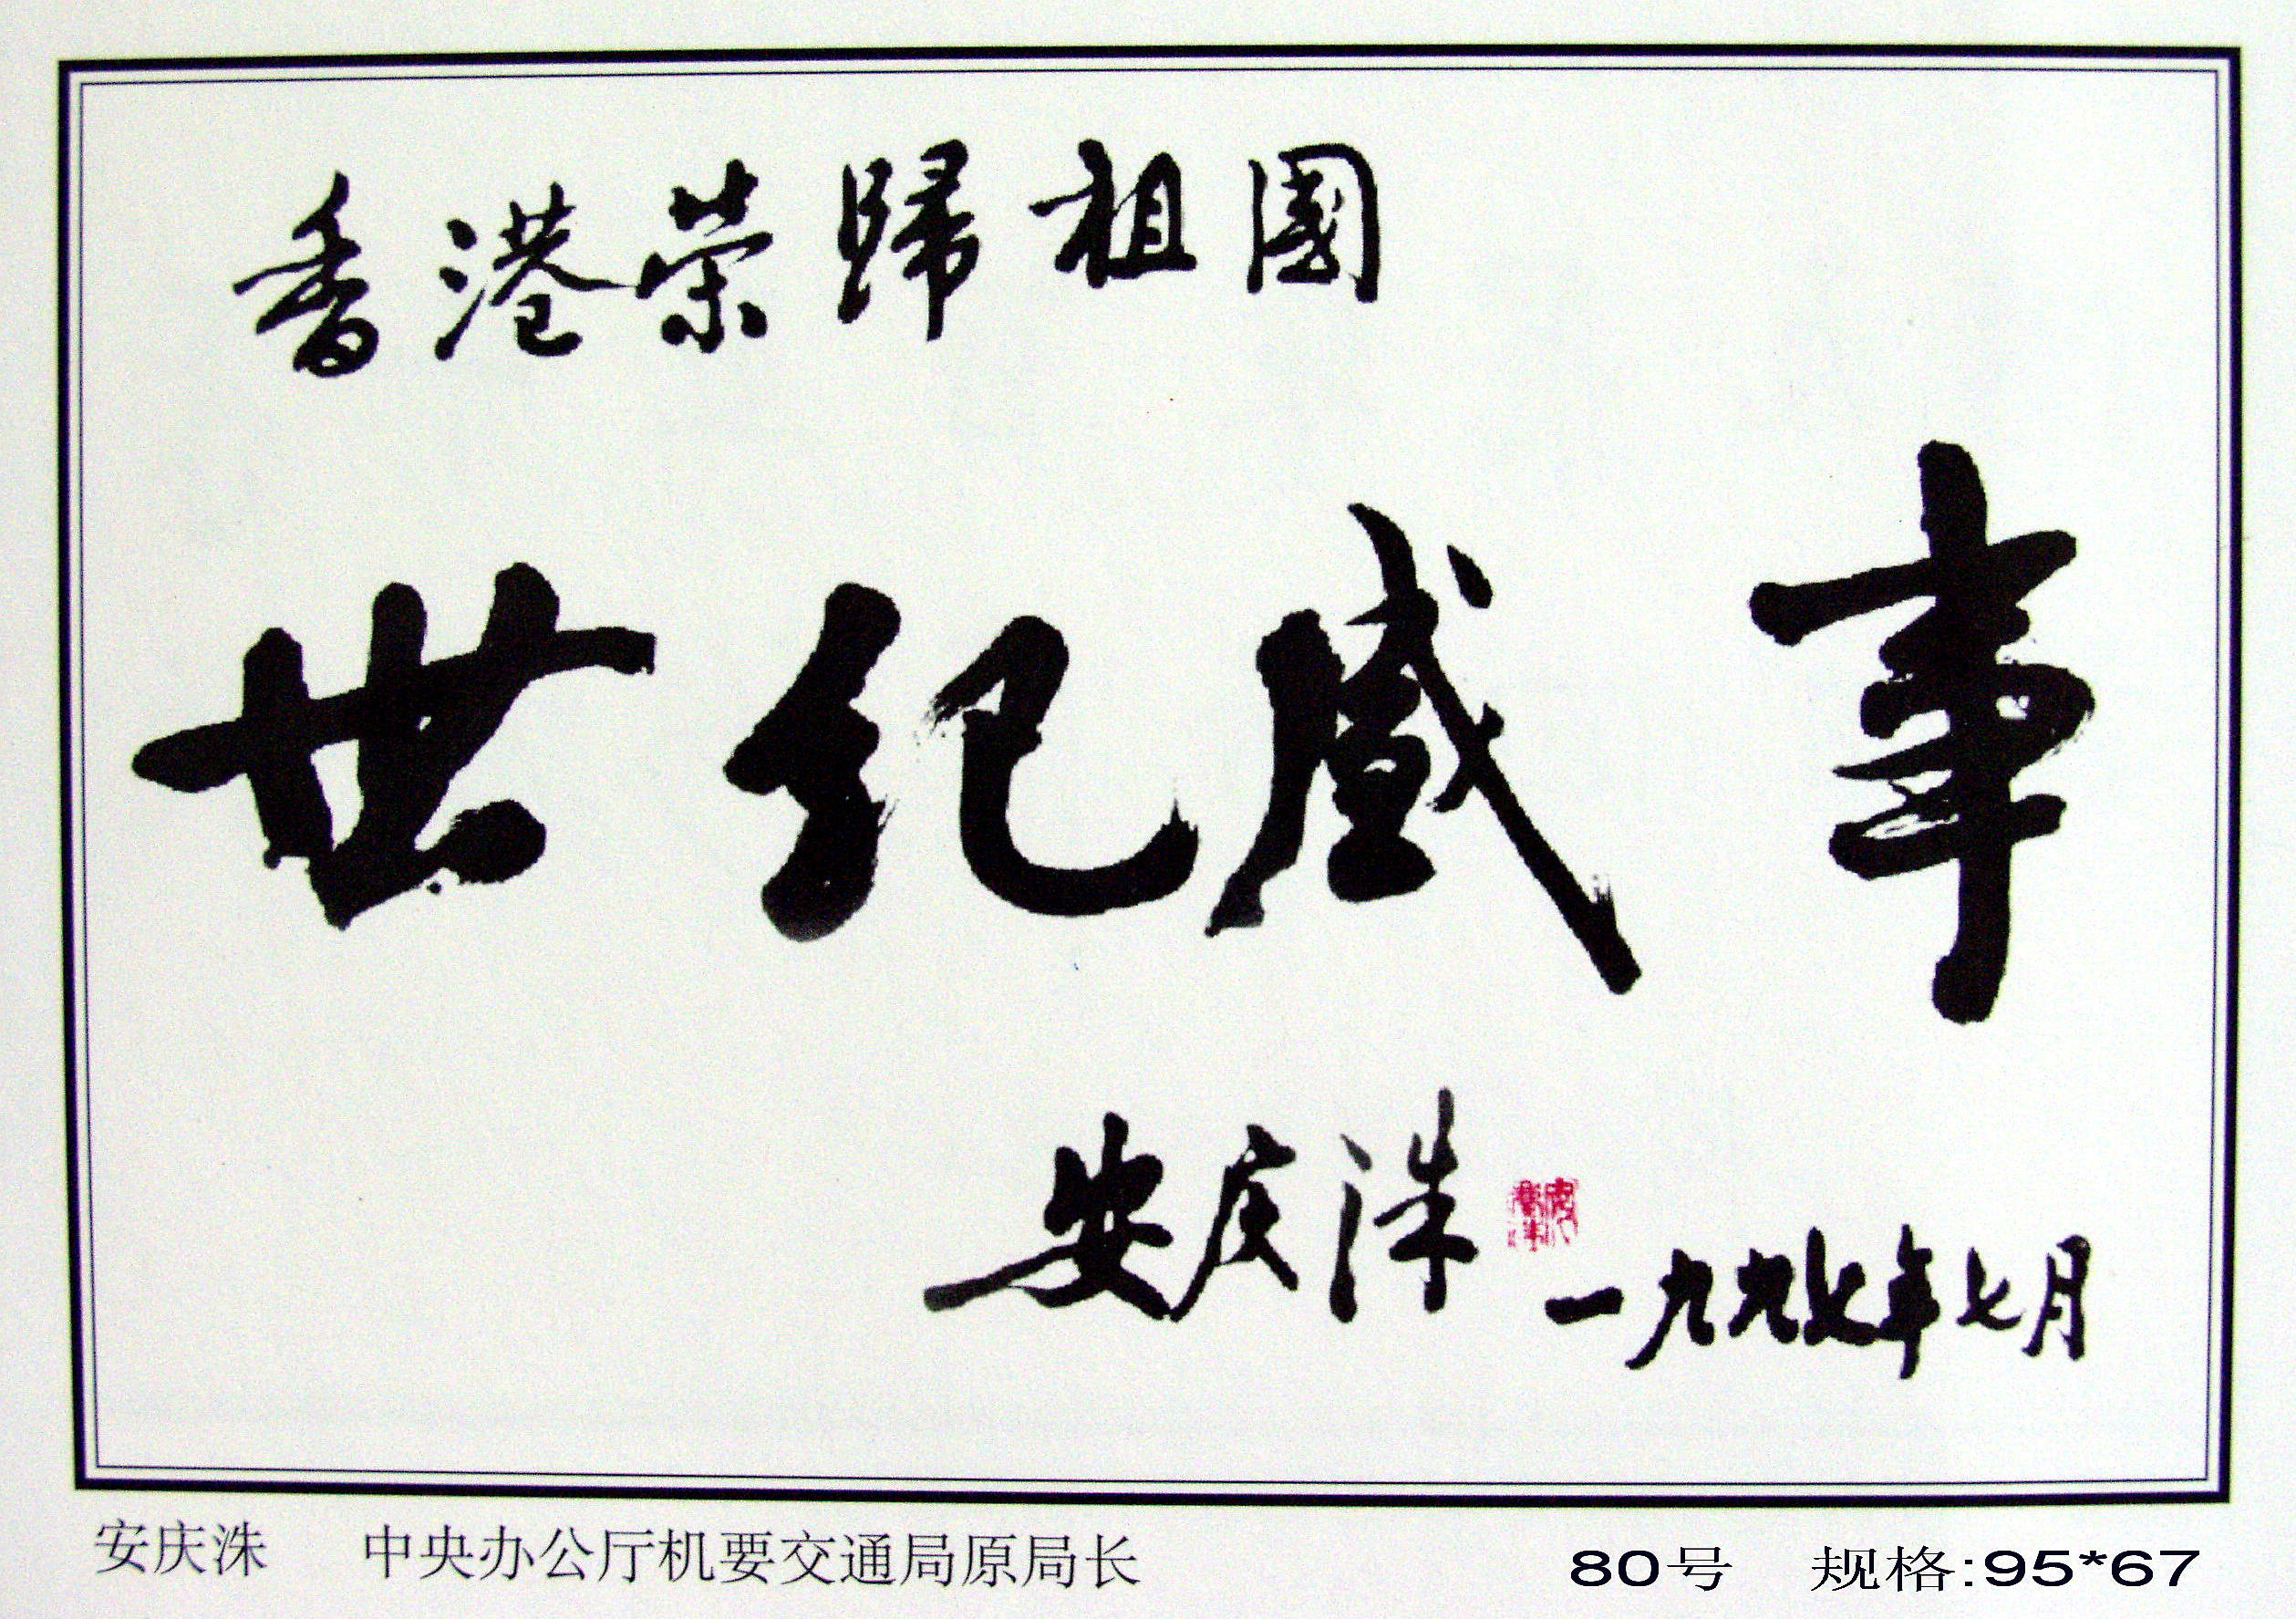 香港荣歸祖國
世纪盛事
安庆洙
一九九七年七月
安庆洙 中央办公厅机要交通局原局长 80号 规格:95*67